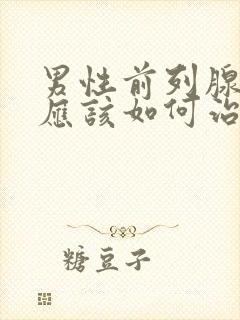 男性前列腺
应该如何治
糖豆子